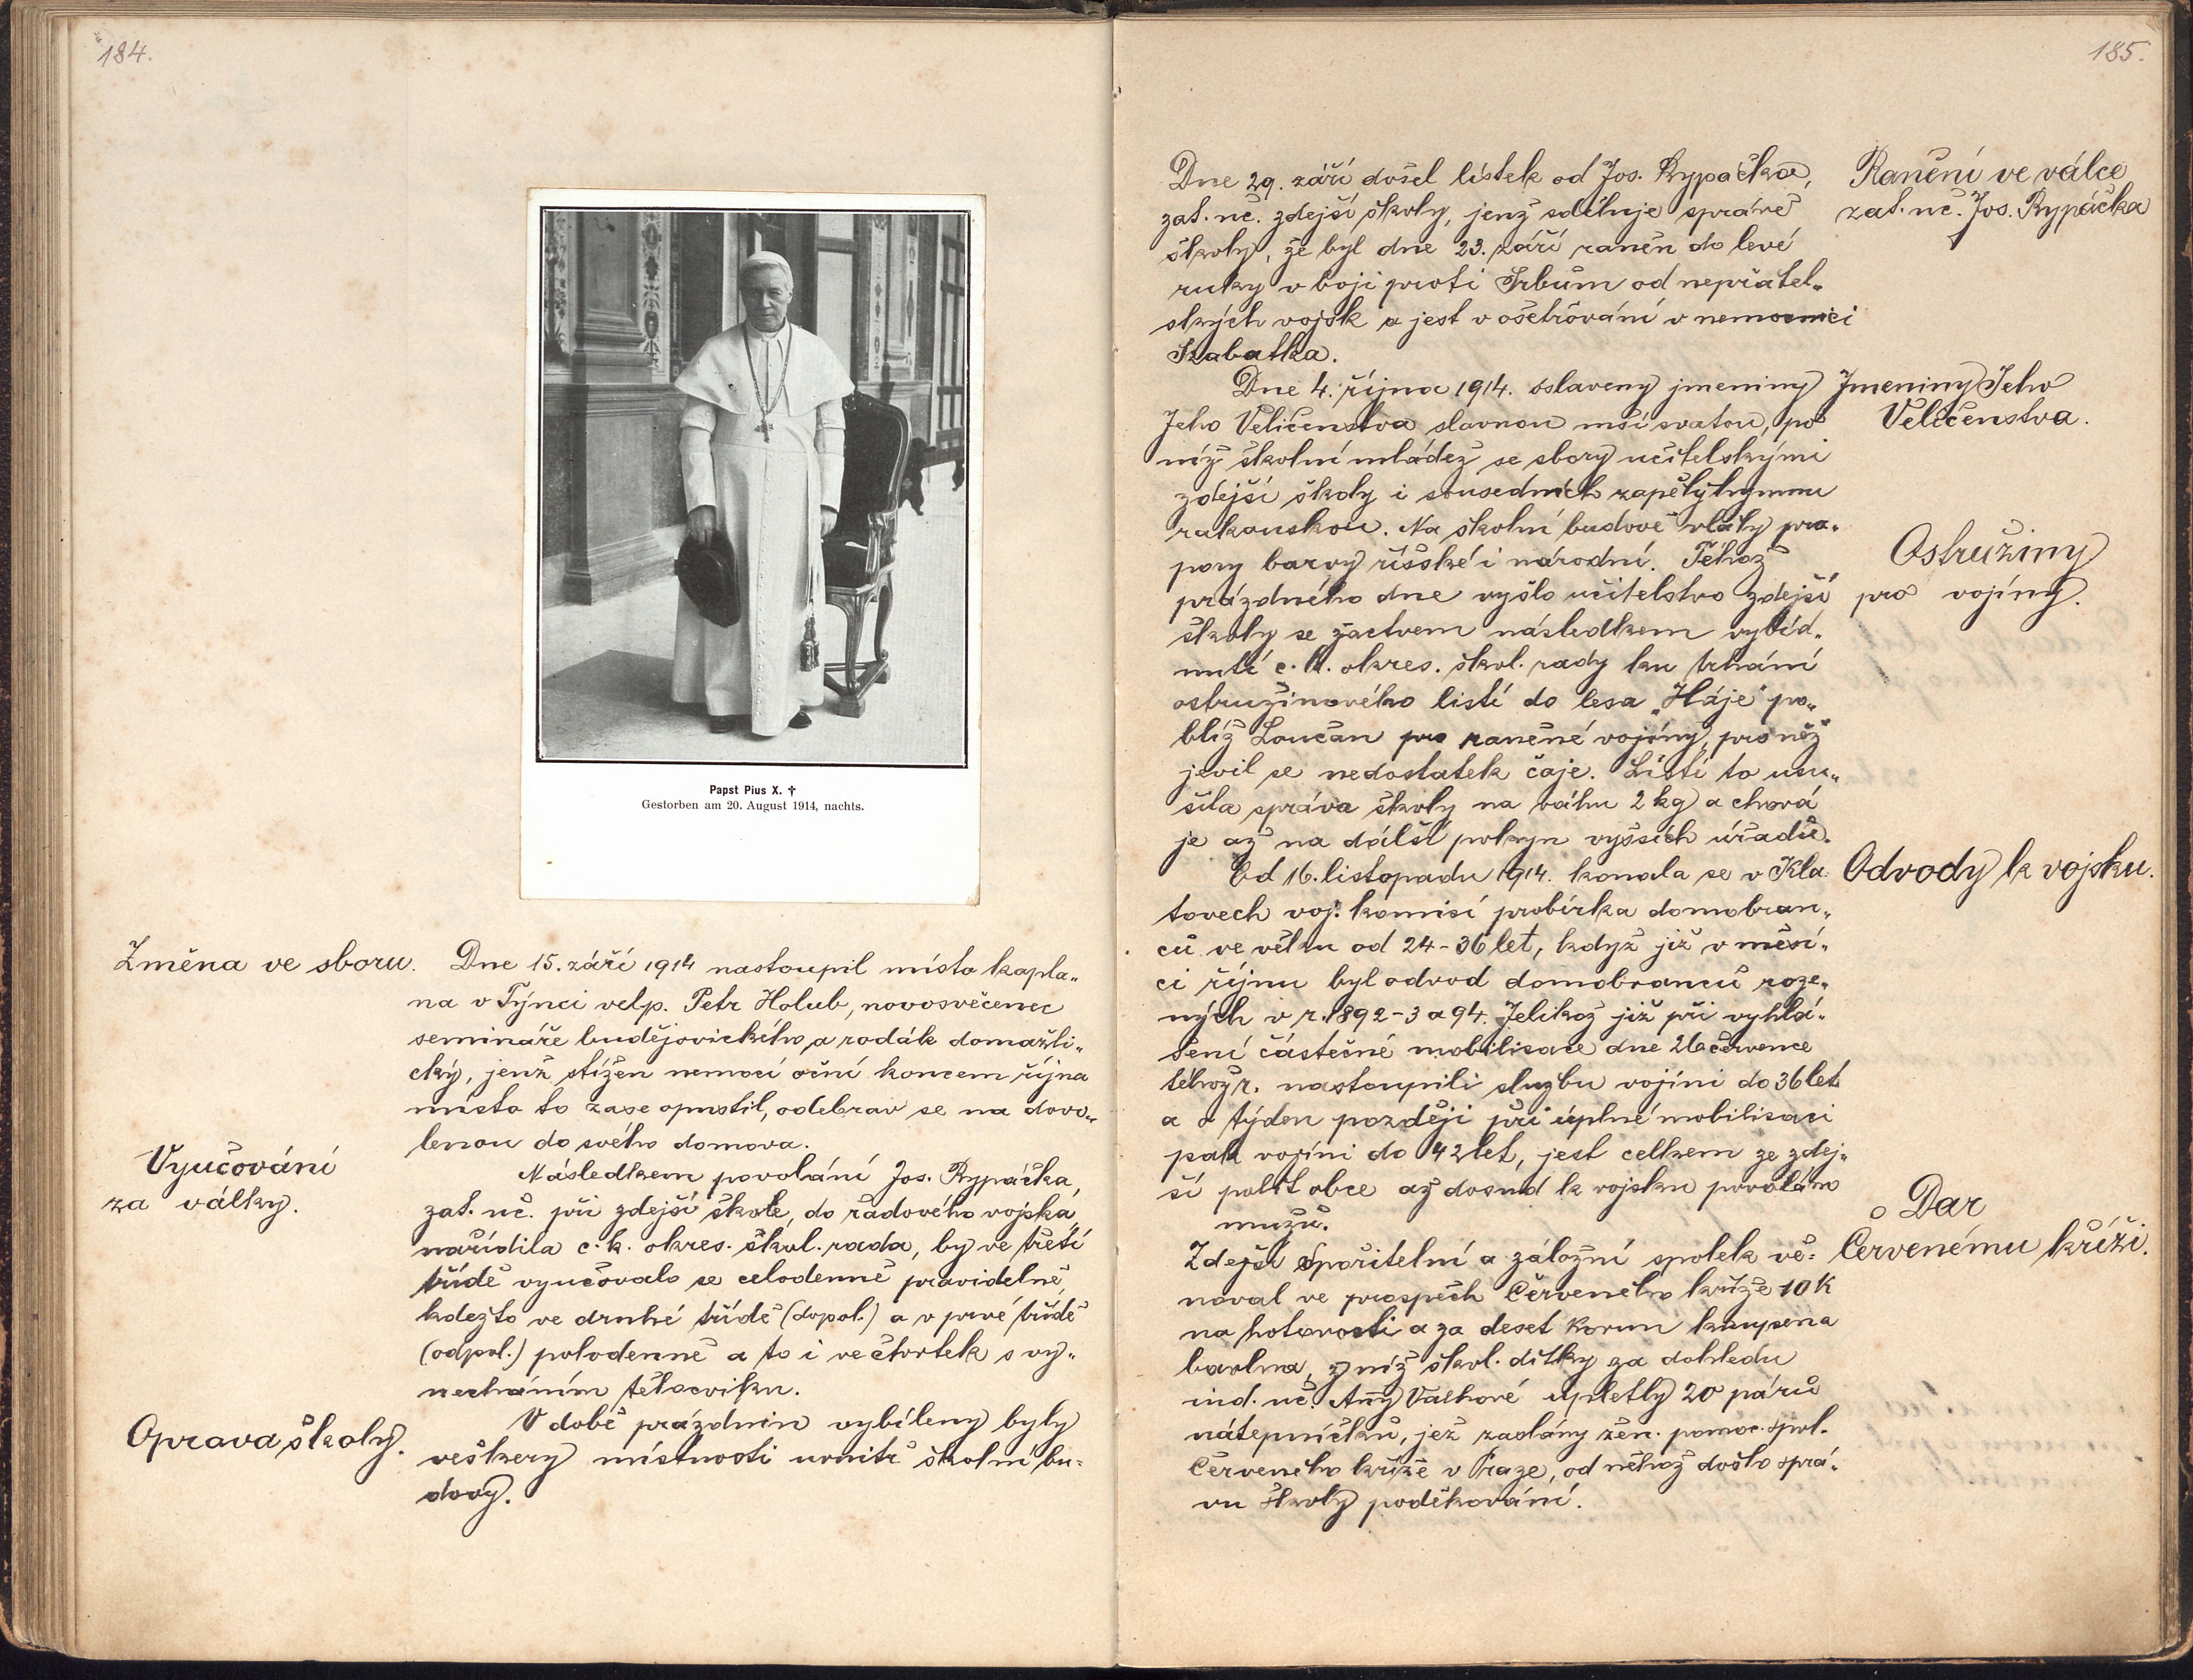 184.
Papst Pius X. †
Gestorben am 20. August 1914, nachts.
Změna ve sboru.
Dne 15. září 1914 nastoupil místo kapla„
na v Týnci velp. Petr Holub, novosvěcenec
semináře budějovického a rodák domažli„
cký, jenž stížen nemocí oční koncem října
místo to zase opustil, odebrav se na dovo„
lenou do svého domova.
Vyučování
za války.
Následkem povolání Jos. Rypáčka,
zat. uč. při zdejší škole, do řadového vojska,
nařídila c. k. okres. škol. rada, by ve třetí
třídě vyučovalo se celodenně pravidelně,
kdežto ve druhé třídě (dopol.) a v prvé třídě
(odpol.) polodenně a to i ve čtvrtek s vy„
necháním tělocviku.
Oprava školy.
V době prázdnin vybíleny byly
veškery místnosti uvnitř školní bu=
dovy.
185.
Dne 29. září došel lístek od Jos. Rypáčka,
zat. uč. zdejší školy, jenž sděluje správě
školy, že byl dne 23. září raněn do levé
ruky v boji proti Srbům od nepřátel„
ských vojsk a jest v ošetřování v nemocnici
Szabatka.
Ranění ve válce
zat. uč. Jos. Rypáčka
Dne 4. října 1914. oslaveny jmeniny
Jeho Veličenstva slavnou mší svatou, po
níž školní mládež se sbory učitelskými
zdejší školy i sousedních zapěly hymnu
rakouskou. Na školní budově vlály pra„
pory barvy říšské i národní. Téhož
prázdného dne vyšlo učitelstvo zdejší
školy se žactvem následkem vybíd„
nutí c. k. okres. škol. rady ku trhání
ostružinového listí do lesa „Háje" po„
blíž Loučan pro raněné vojíny, pro něž
jevil se nedostatek čaje. Listí to usu„
šila správa školy na váhu 2 kg a chová
je až na další pokyn vyšších úřadů.
Jmeniny Jeho
Veličenstva.
Ostružiny
pro vojíny.
Od 16. listopadu 1914. konala se v Kla„
tovech voj. komisí probírka domobran„
ců ve věku od 24-36 let, když již v měsí„
ci říjnu byl odvod domobranců roze„
ných v r. 1892-3 a 94. Jelikož již při vyhlá„
šení částečné mobilisace dne 26 července
téhož r. nastoupili službu vojíni do 36 let
a o týden později při úplné mobilisaci
pak vojíni do 42 let, jest celkem ze zdej„
ší polit obce až dosud k vojsku povoláno
mužů.
Odvody k vojsku.
Zdejší Spořitelní a záložní spolek vě=
noval ve prospěch Červeného kříže 10 K
na hotovosti a za deset korun koupena
bavlna, z níž škol. dítky za dohledu
ind. uč. Anny Valhové upletly 20 párů
nátepníčků, jež zaslány žen. pomoc. spol.
Červeného kříže v Praze, od něhož došlo sprá„
vu školy poděkování.
Dar
Červenému kříži.